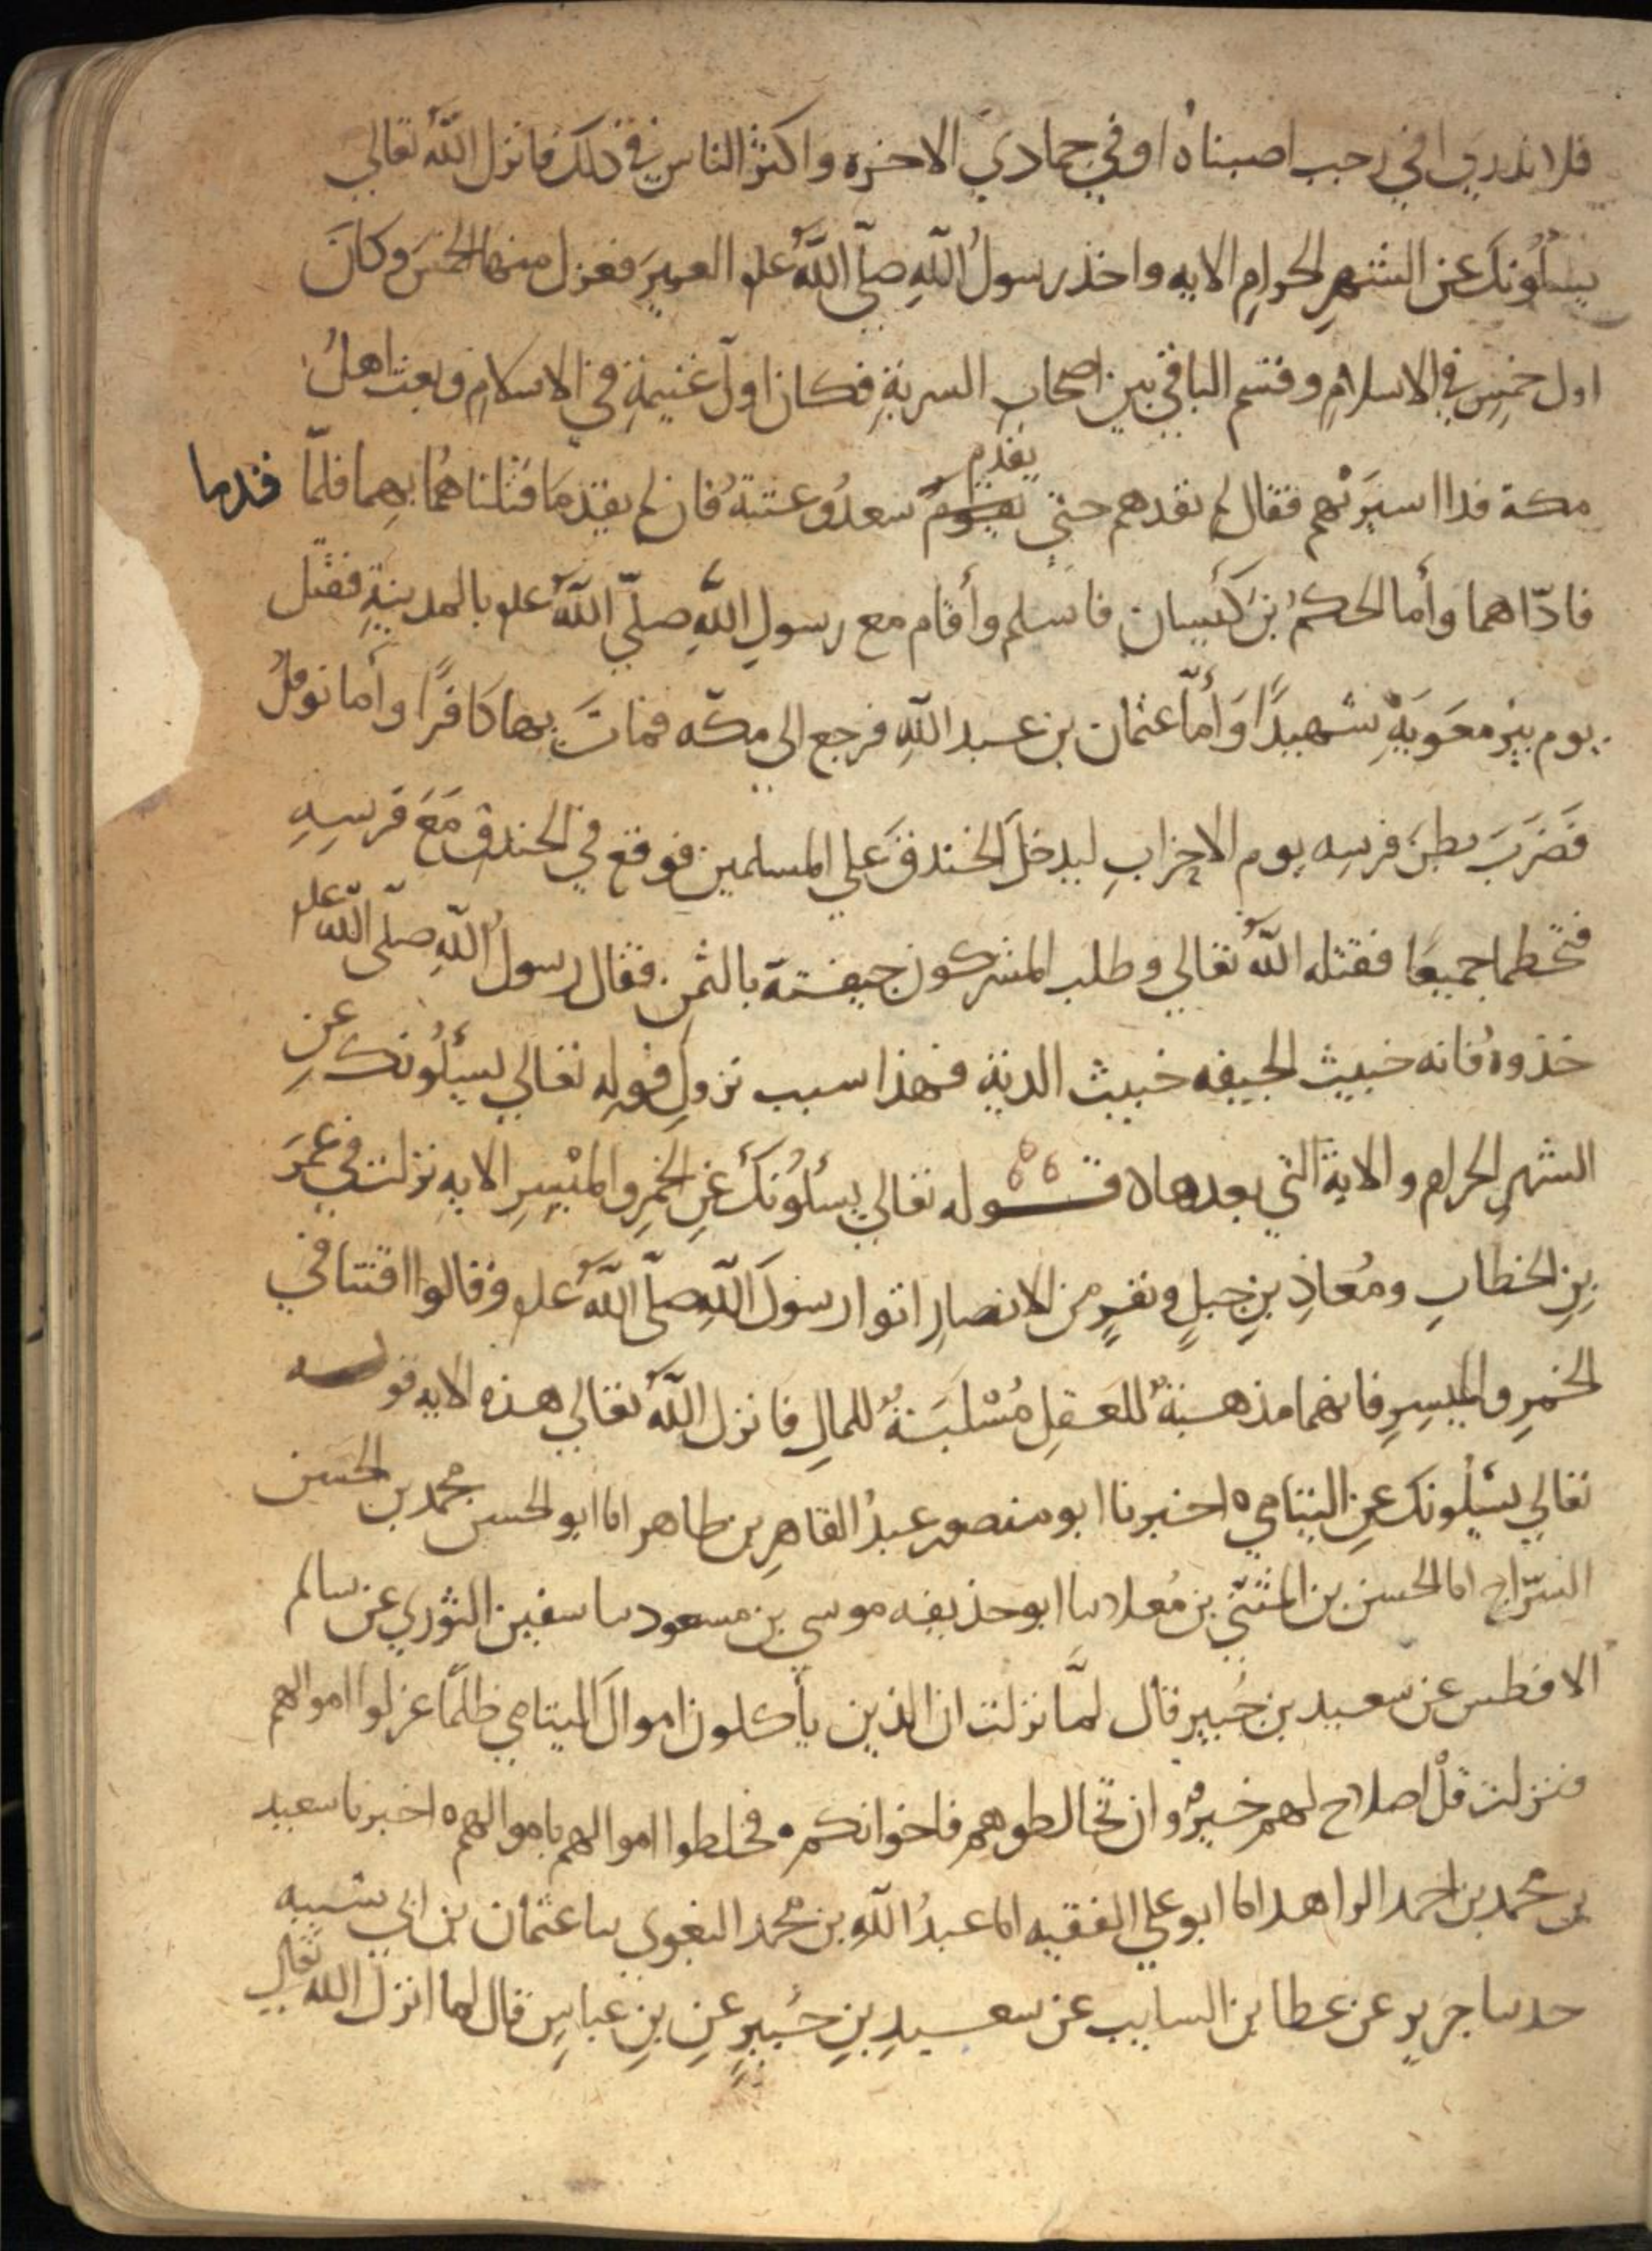 فلا ندري افي رجب اصبناه او في جمادي الاخره واكثر الناس في ذلك فانزل اللهُ تعالي
يسئلُونكَ عن الشهرِ الحرامِ الايه واخذ رسولُ اللهِ صلّى اللهُ علىه العيرَ فعزل منها الخمسَ وكانَ
اول خمسٍ في الاسلامِ وقسم الباقي بين اصحابِ السريةِ فكان اول غنيمةٍ في الاسلامِ وبعث اهلُ
مكة فدا اسيرَيْهم فقال لم نقدهم حتى يقدم سعدُ وعتبةُ فان لم يقدمَا قتلناهُما بهِما فلمّا قدما
فادّاهما وأما الحكمُ بنَ كَيسان فاسلم وأقام مع رسولِ اللهِ صلّى اللهُ علىه بالمدينةِ فقتل
يوم بير معَويةَ شهيدًا وَأمّا عثمان بن عبد اللهِ فرجع الى مكّه فماتَ بها كافرًا وأما نوفلُ
فَضَرَبَ بطنَ فرسه يوم الاحزابِ ليدخلَ الخندقَ علي المسلمين فوقع في الخندق مَعَ فرسِهِ
فتحطما جميعًا فقتله اللهُ تعالي وطلب المشركون جيفته بالثمن فقال رسولُ اللهِ صلّى اللهُ علىه
خذوهُ فانه خبيث الجيفه خبيث الدية فهذا سبب نزولِ قولِه تعالي يسئلُونكَ عن
الشهرِ الحرام والاية التي بعدها ه قـــوله تعالي يسئلُونكَ عَنِ الخمرِ والميْسِرِ الايهِ نزلت في عمَرَ
بنِ الخطابِ ومُعاذِ بنِ جبلٍ ونفرٍ من الانصارِ اتوا رسولَ اللهِ صلّى اللهُ علىه وقالوا افتنا في
الخمرِ والميسِرِ فانهما مذهبةٌ للعقلِ مُسْلَبَةٌ للمالِ فانزل اللهُ تعالي هذه الايه قوله
تعالي يسْئلُونكَ عنِ اليتامي ه اخبرنا ابو منصور عبدُ القاهرِ بن طاهر انا ابو الحسن محمد بن الحَسَن
السّرّاج انا الحسن بن المثنّي بن مُعاد نا ابو حذيفه موسي بن مسعود نا سفين الثوري عن سالم
الافطس عن سعيد بن جُبير قال لمّا نزلت ان الذين يأكلون اموالَ اليتامي ظلمًا عزلوا اموالهم
فنزلت قلْ اصلاح لهم خيرٌ وان تخالطوهم فاخوانكم ه فخلطوا اموالهم باموالهم ه اخبرنا سعيد
بن محمد بن احمد الزاهد انا ابو علي الفقيه انا عبدُ اللهِ بن محمد البغوي نا عثمان بن ابي شيبه
حدثنا جرير عن عطا بن السايب عن سعيدِ بنِ جُبيرٍ عنِ بنِ عباسٍ قال لما انزل الله تعالي